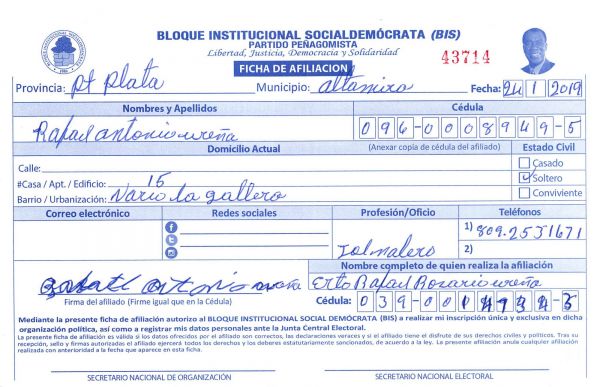 BLOQUE INSTITUCIONAL SOCIALDEMÓCRATA (BIS)
PARTIDO PEÑAGOMISTA
Libertad, Justicia, Democracia y Solidaridad
43714
FICHA DE AFILIACION
Provincia: Pt Plata Municipio: altamira Fecha: 24 1 2019
Nombres y Apellidos Cédula
Rafael antonio ureña 096-0008949-5
Domicilio Actual (Anexar copia de cédula del afiliado) Estado Civil
Calle: Casado
#Casa / Apt. / Edificio: 15 Soltero
Barrio / Urbanización: la gallera Conviviente
Correo electrónico Redes sociales Profesión/Oficio Teléfonos
1) 809.2551671
2)
Nombre completo de quien realiza la afiliación
Rafael antonio ureña Rafael Rosario ureña
Firma del afiliado (Firme igual que en la Cédula) Cédula: 039-001
Mediante la presente ficha de afiliación autorizo al BLOQUE INSTITUCIONAL SOCIAL DEMÓCRATA (BIS) a realizar mi inscripción única y exclusiva en dicha
organización política, así como a registrar mis datos personales ante la Junta Central Electoral.
La presente ficha de afiliación es válida si los datos ofrecidos por el afiliado son correctos, las declaraciones veraces y si el afiliado tiene el disfrute de sus derechos civiles y políticos. Tras su
recepción, sello y firmas autorizadas el afiliado ejercerá todos los derechos y los deberes estatutariamente sancionados, de acuerdo a la ley. La presente afiliación anula cualquier afiliación
realizada con anterioridad a la fecha que aparece en esta ficha.
SECRETARIO NACIONAL DE ORGANIZACIÓN SECRETARIO NACIONAL ELECTORAL